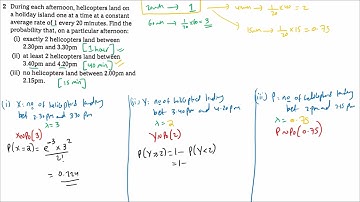 2 During each afternoon, helicopters land on
a holiday island one at a time at a constant
average rate of 1 every 20 minutes. Find the
probability that, on a particular afternoon:
(i) exactly 2 helicopters land between
2.30pm and 3.30pm [1 hour]
(ii) at least 2 helicopters land between
3.40pm and 4.20pm [40 min]
(iii) no helicopters land between 2.00pm and
2.15pm. [15 min]
20 min → 1
60 min → 1/20 × 60 = 3
→ 1/20 × 40 = 2
15 min → 1/20 × 15 = 0.75
(i) X: no of helicopters landing
bet 2.30 pm and 3.30 pm
λ = 3
X~Po(3)
P(X=2) = e^-3 × 3^2
2!
= 0.224
(ii) Y: no of helicopters landing
bet 3.40 pm and 4.20 pm
λ = 2
Y~Po(2)
P(Y≥2) = 1 - P(Y<2)
= 1 -
(iii) P: no of helicopters landing
bet 2 pm and 2.15 pm
λ = 0.75
P~Po(0.75)